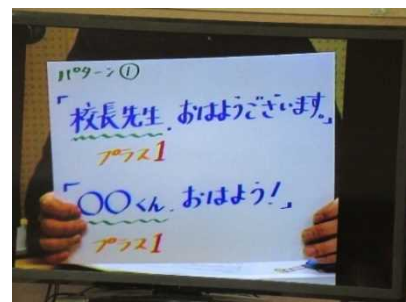 パターン①
「校長先生、おはようございます。」
プラス1
「〇〇くん、おはよう!」
プラス1